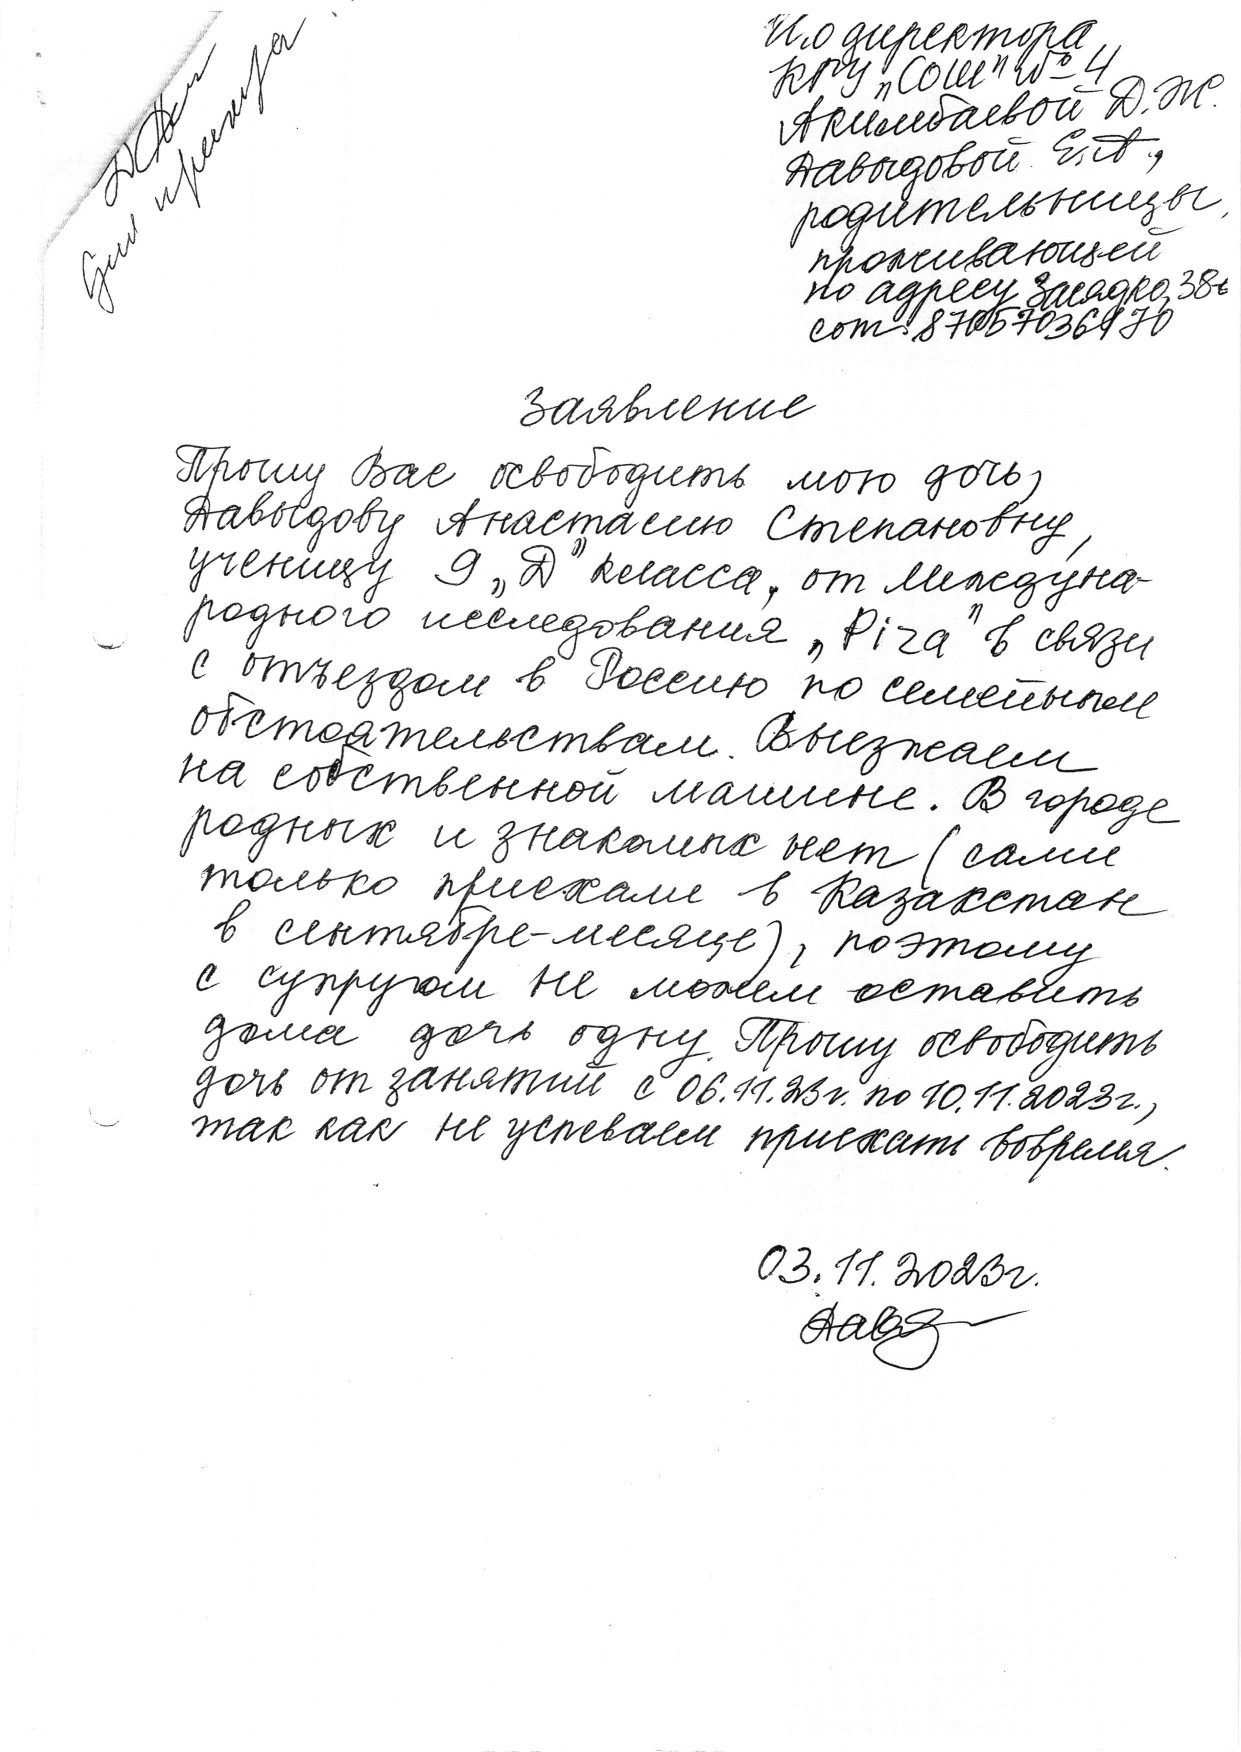 И.о директора
КГУ „СОШ" №4
Акимбаевой Д.Ж.
Давыдовой Е.А.,
родительницы,
проживающей
по адресу Засядко, 38
сот. 87057036970
Заявление
Прошу Вас освободить мою дочь,
Давыдову Анастасию Степановну,
ученицу 9 „Д" класса, от Междуна-
родного исследования „Piza" в связи
с отъездом в Россию по семейным
обстоятельствам. Выезжаем
на собственной машине. В городе
родных и знакомых нет (сами
только приехали в Казахстан
в сентябре-месяце), поэтому
с супругом не можем оставить
дома дочь одну. Прошу освободить
дочь от занятий с 06.11.23г. по 10.11.2023г.,
так как не успеваем приехать вовремя.
03.11.2023г.